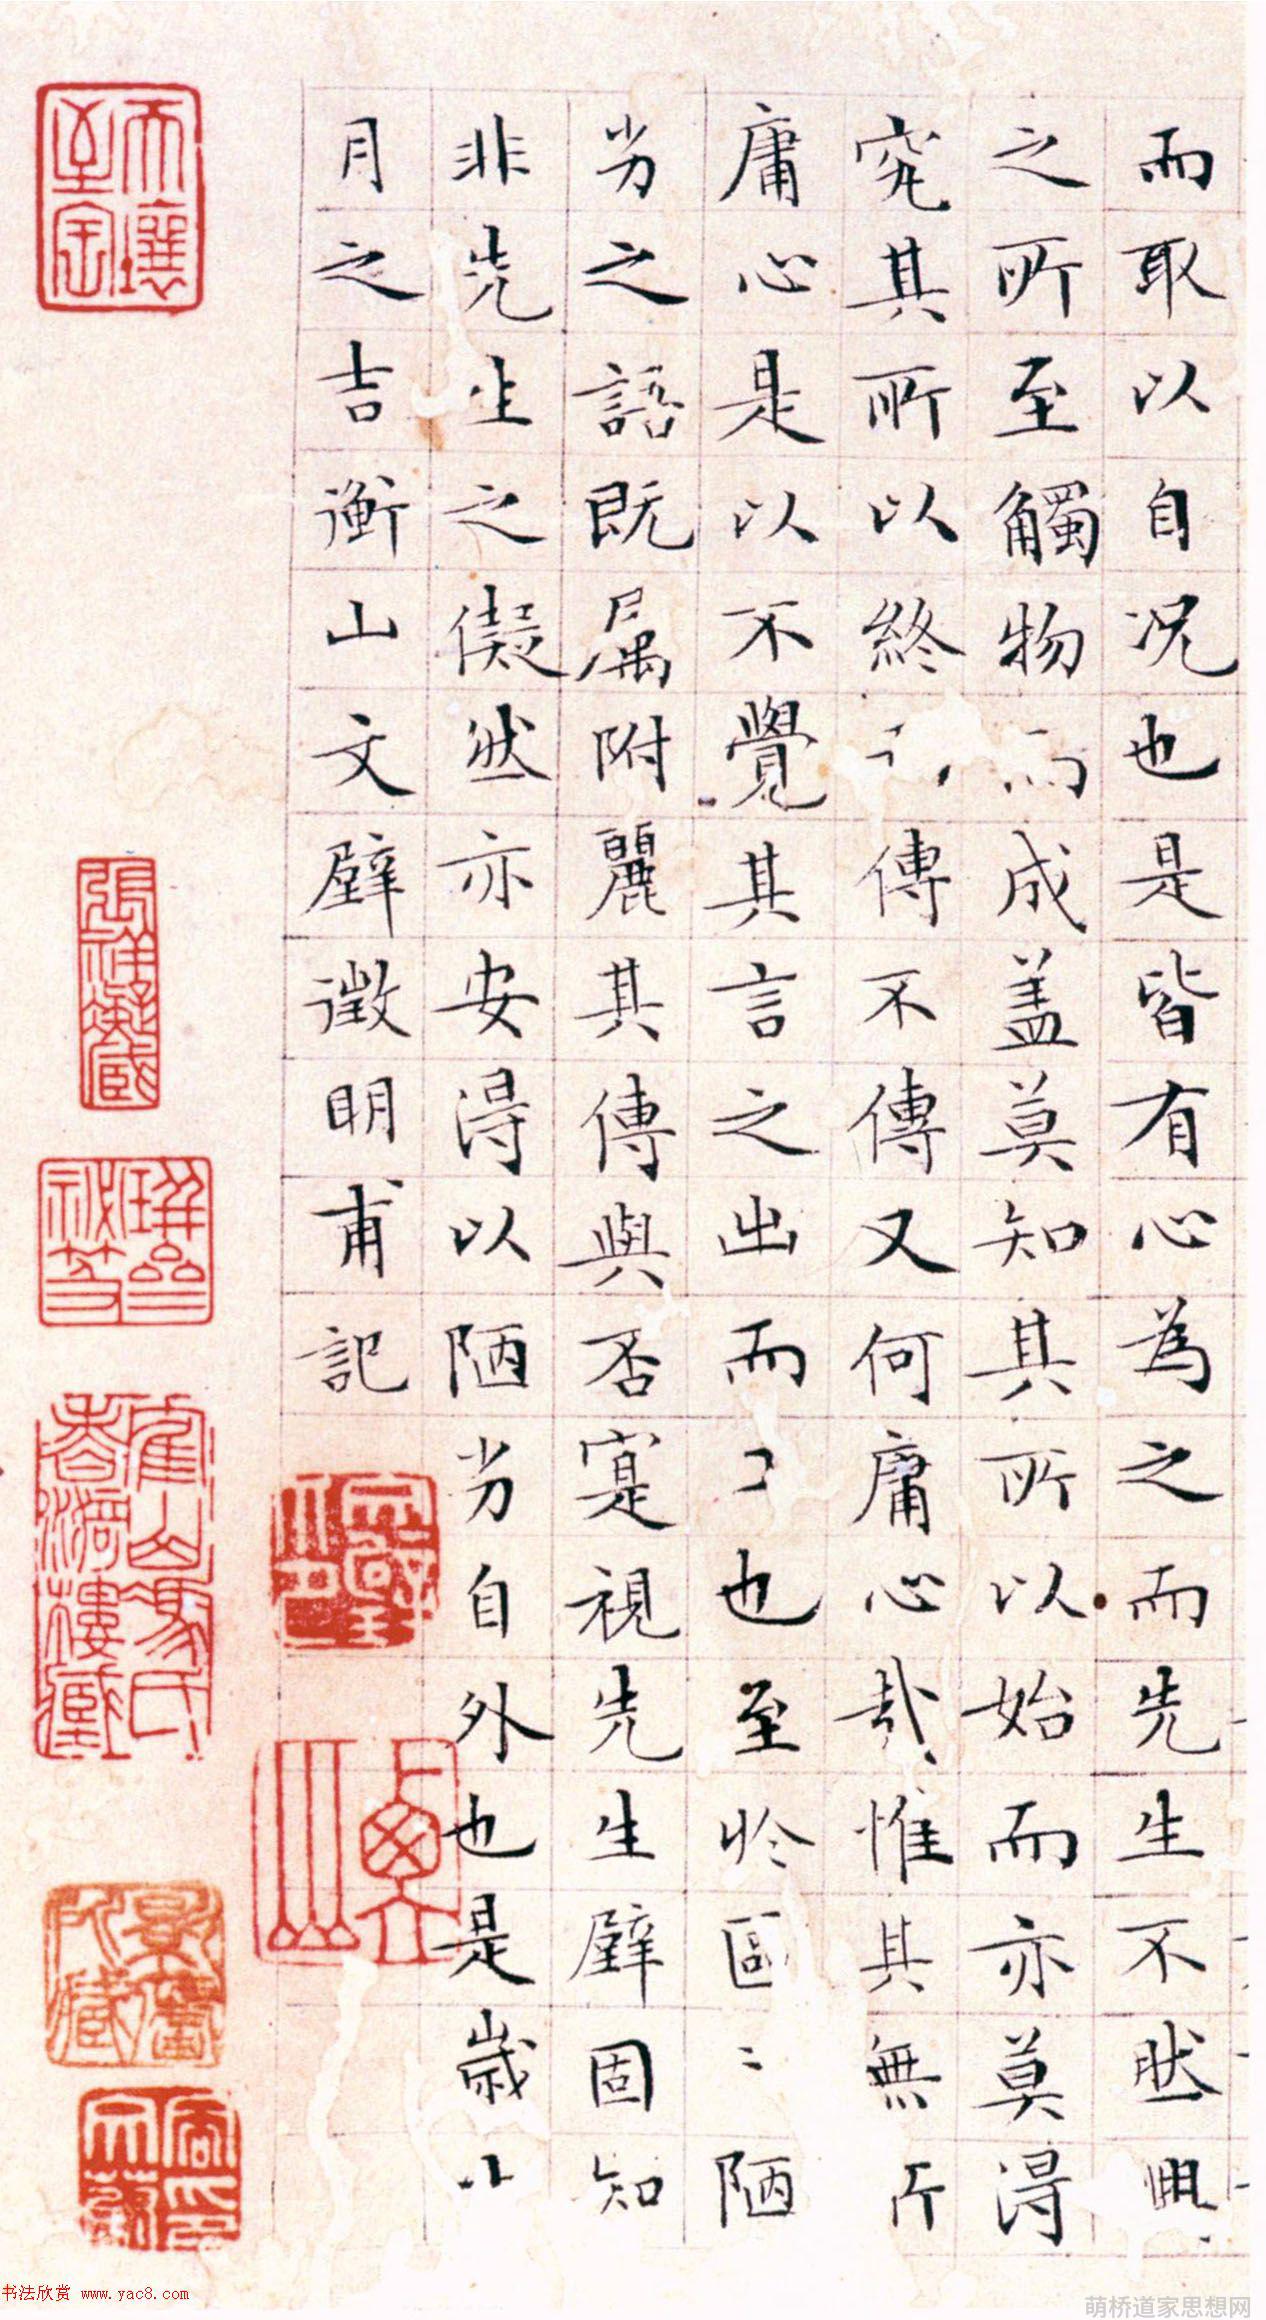 而取以自况也是皆有心為之而先生不然興
之所至觸物而成盖莫知其所以始而亦莫得
究其所以終 傳不傳又何庸心哉惟其無所
庸心是以不覺其言之出而 也至於區〻陋
劣之語既属附麗其傳與否寔視先生壁固知
非先生之儗然亦安得以陋劣自外也是歲
月之吉衡山文壁徵明甫記
書法欣赏 www.yac8.com
萌桥道家思想网